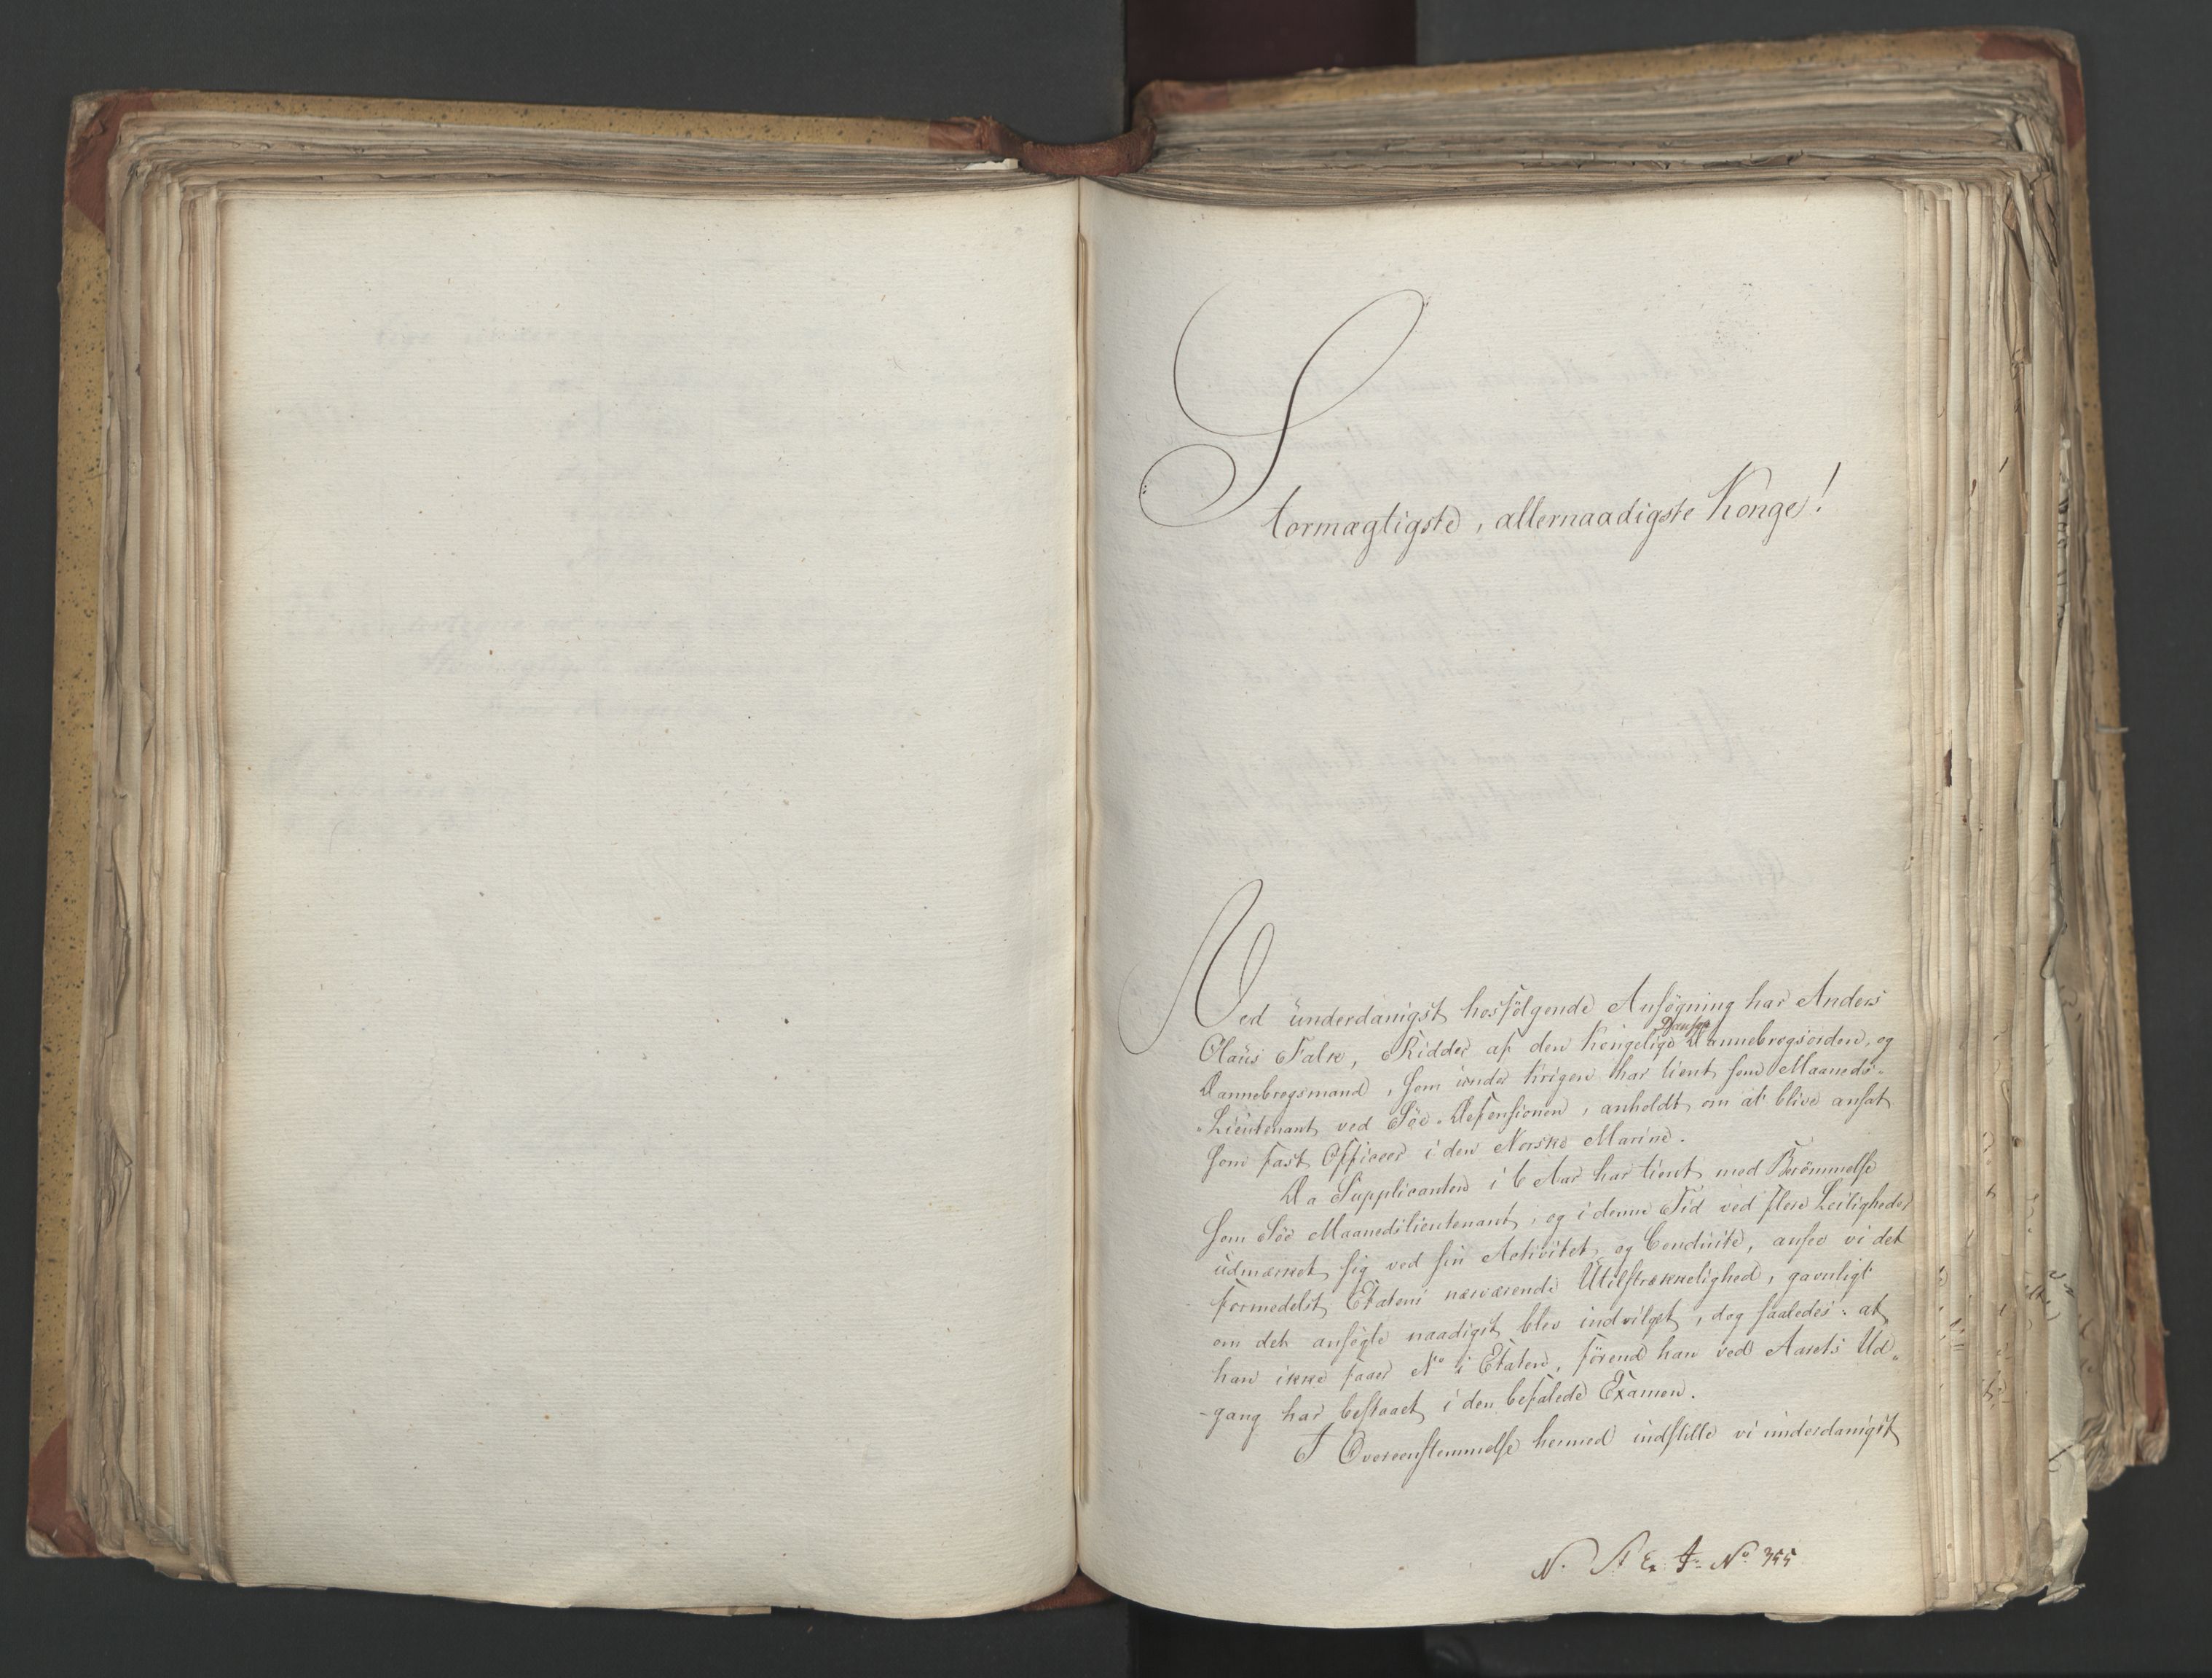 Stormægtigste, allernaadigste Konge!
Ved underdanigst hosfölgende Ansögning har Anders
Danske
Olaüs Falk, Ridder af den Kongelige Dannebrogsorden, og
Dannebrogsmand, som under Krigen har tient som Maaneds-
-Lieutenant ved Söe-Defensionen, anholdt om at blive ansat
som fast Officeer i den Norske Marine.
Da Supplicanten i 6 Aar har tient med Berömmelse
som Söe Maanedslieutenant, og i denne Tid ved flere Leiligheder
udmærket sig ved sin Activitet og Conduite, ansee vi det
formedelst Etatens nærværende Utilstrækkelighed, gavnligt
om det ansögte naadigst blev indvilget, dog saaledes: at
han ikke faaer No i Etaten, förend han ved Aarets Ud-
-gang har bestaaet i den befalede Examen.
I Overeenstemmelse hermed indstille vi underdanigst
N. St. Ex. J: No 355